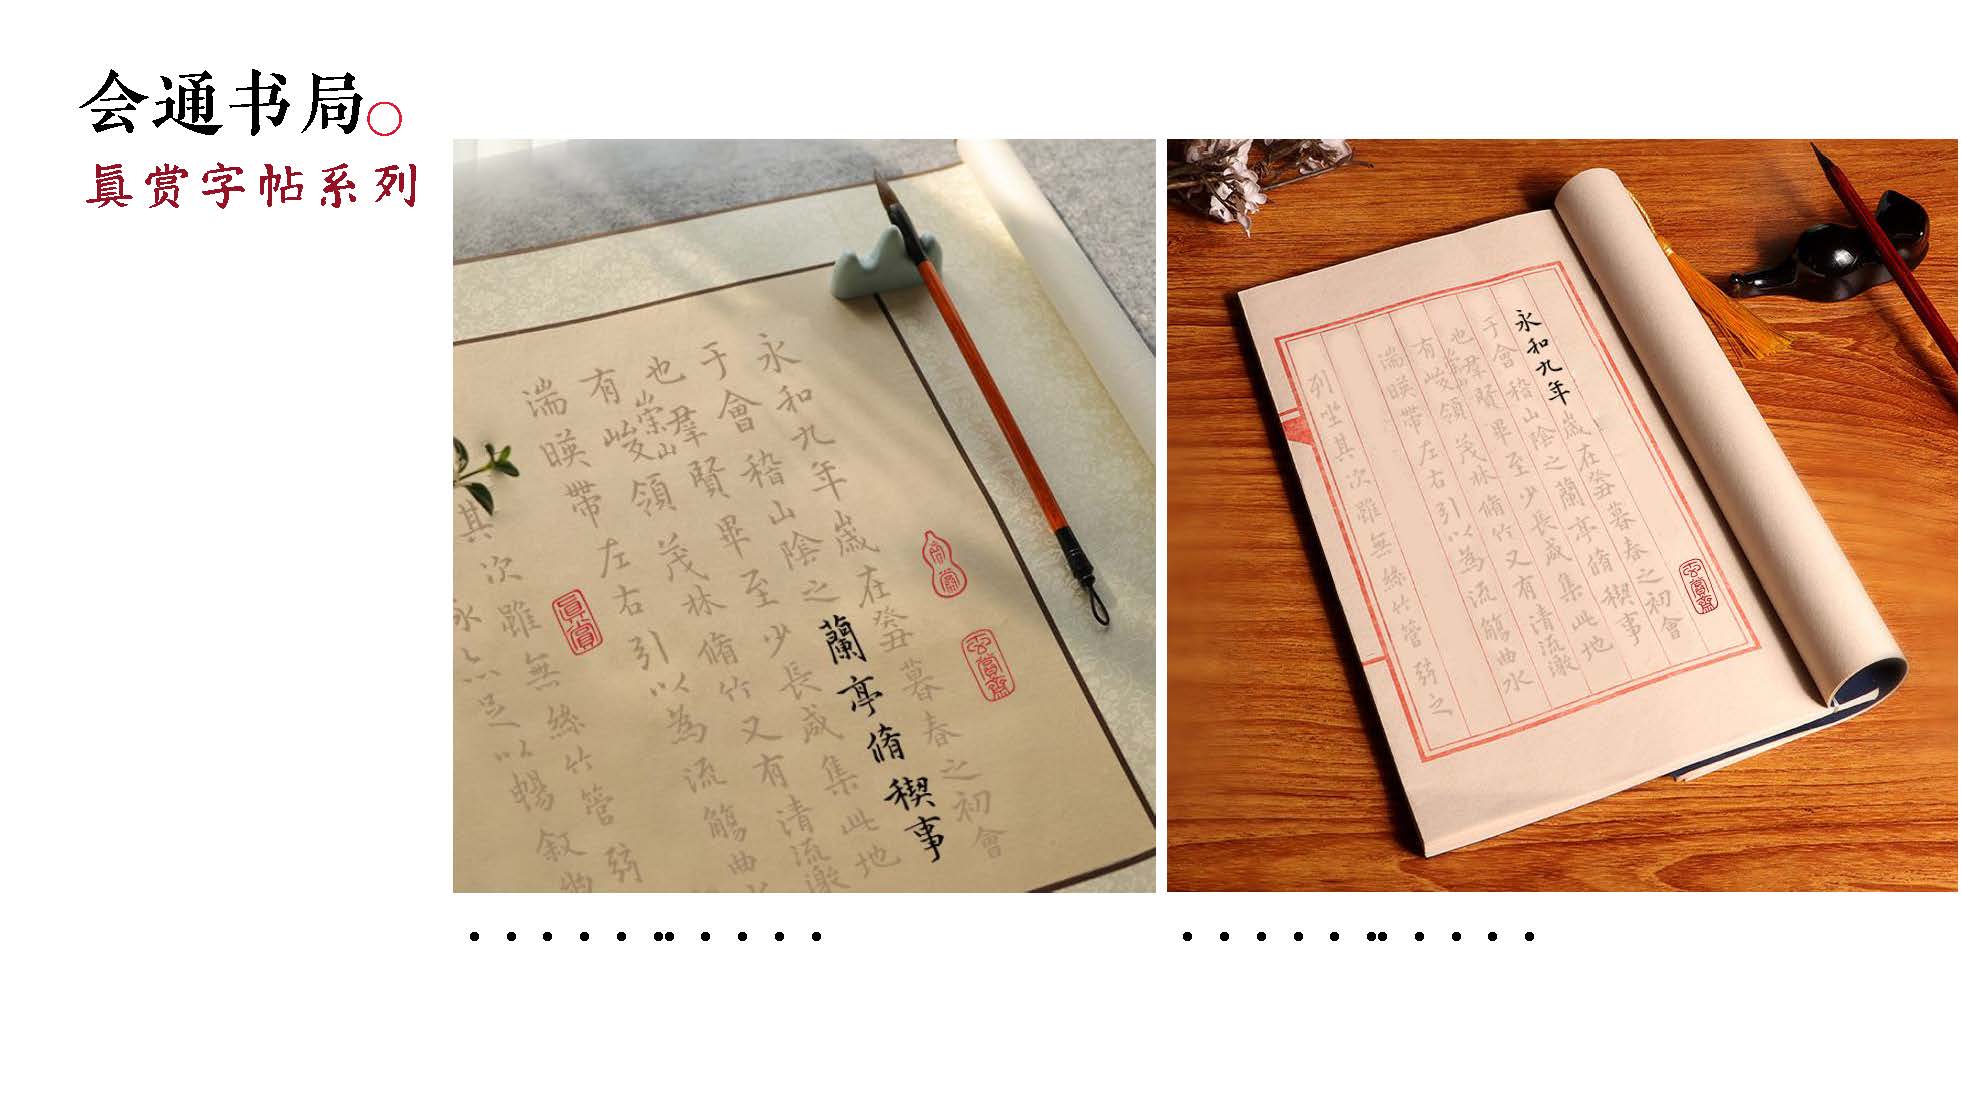 会通书局
眞赏字帖系列
永和九年歲在癸丑暮春之初會
于會稽山陰之蘭亭脩稧事
也羣賢畢至少長咸集此地
有崇山峻領茂林脩竹又有清流激
湍暎帶左右引以為流觴曲
其次雖無絲竹管弦
亦足以暢敘
眞賞
玄賞齋
永和九年歲在癸丑暮春之初會
于會稽山陰之蘭亭脩稧事
也羣賢畢至少長咸集此地
有崇山峻領茂林脩竹又有清流激
湍暎帶左右引以為流觴曲水
列坐其次雖無絲竹管弦之
玄賞齋